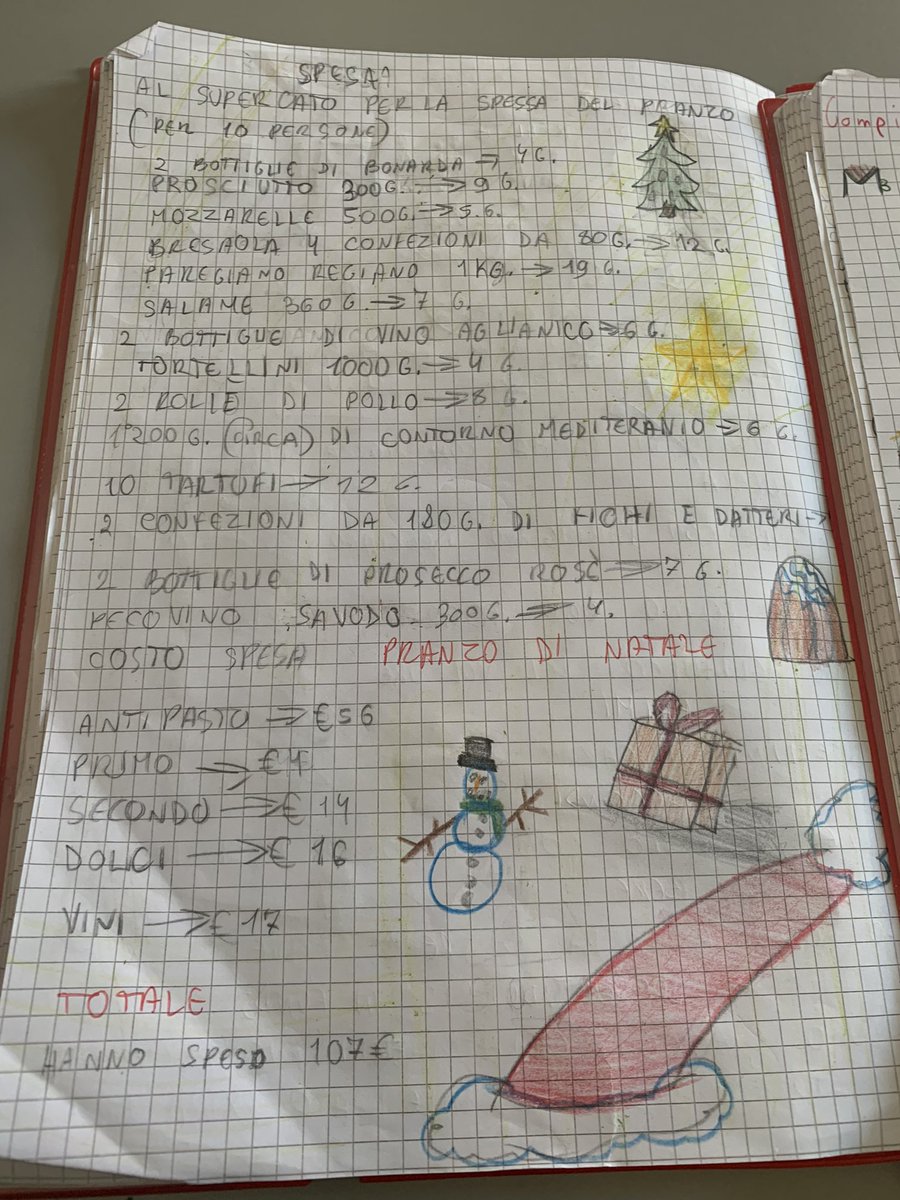 SPESA?
AL SUPERCATO PER LA SPESSA DEL PRANZO
(PER 10 PERSONE)
2 BOTTIGLIE DI BONARDA → 4 G.
PROSCIUTTO 300G. → 9 G.
MOZZARELLE 500G. → 5.G.
BRESAOLA 4 CONFEZIONI DA 80G. → 12 G.
PAREGIANO REGIANO 1KG. → 19 G.
SALAME 360G. → 7 G.
2 BOTTIGLIE DI VINO AGLIANICO → 6 G.
TORTELLINI 1000G. → 4 G.
2 ROLLE DI POLLO → 8 G.
1°200G. (CIRCA) DI CONTORNO MEDITERANIO → 6 G.
10 TARTUFI → 12 G.
2 CONFEZIONI DA 180G. DI FICHI E DATTERI →
2 BOTTIGLIE DI PROSECCO ROSÈ → 7 G.
PECOVINO SAVODO 300G. → 4.
COSTO SPESA PRANZO DI NATALE
ANTIPASTO → €56
PRIMO → €4
SECONDO → € 14
DOLCI → € 16
VINI → € 17
TOTALE
HANNO SPESO 107€
Compi
M3